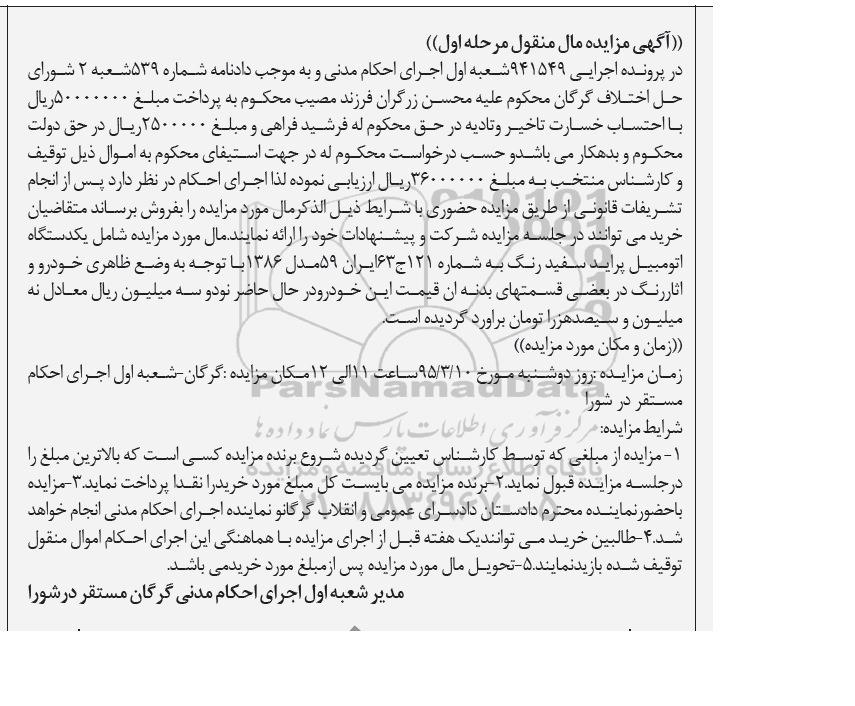 ((آگهی مزایده مال منقول مرحله اول))
در پرونده اجرایی ۹۴۱۵۴۹شعبه اول اجرای احکام مدنی و به موجب دادنامه شماره ۵۳۹شعبه ۲ شورای
حل اختلاف گرگان محکوم علیه محسن زرگران فرزند مصیب محکوم به پرداخت مبلغ ۵۰۰۰۰۰۰۰ریال
با احتساب خسارت تاخیر وتادیه در حق محکوم له فرشید فراهی و مبلغ ۲۵۰۰۰۰۰ریال در حق دولت
محکوم و بدهکار می باشدو حسب درخواست محکوم له در جهت استیفای محکوم به اموال ذیل توقیف
و کارشناس منتخب به مبلغ ۳۶۰۰۰۰۰۰ریال ارزیابی نموده لذا اجرای احکام در نظر دارد پس از انجام
تشریفات قانونی از طریق مزایده حضوری با شرایط ذیل الذکرمال مورد مزایده را بفروش برساند متقاضیان
خرید می توانند در جلسه مزایده شرکت و پیشنهادات خود را ارائه نمایند.مال مورد مزایده شامل یکدستگاه
اتومبیل پراید سفید رنگ به شماره ۱۲۱ج۶۳ایران ۵۹مدل ۱۳۸۶با توجه به وضع ظاهری خودرو و
اثاررنگ در بعضی قسمتهای بدنه ان قیمت این خودرودر حال حاضر نودو سه میلیون ریال معادل نه
میلیون و سیصدهزرا تومان براورد گردیده است.
((زمان و مکان مورد مزایده))
زمان مزایده :روز دوشنبه مورخ ۹۵/۳/۱۰ساعت ۱۱الی ۱۲مکان مزایده :گرگان-شعبه اول اجرای احکام
مستقر در شورا
شرایط مزایده:
۱- مزایده از مبلغی که توسط کارشناس تعیین گردیده شروع برنده مزایده کسی است که بالاترین مبلغ را
درجلسه مزایده قبول نماید.۲-برنده مزایده می بایست کل مبلغ مورد خریدرا نقدا پرداخت نماید.۳-مزایده
باحضورنماینده محترم دادستان دادسرای عمومی و انقلاب گرگانو نماینده اجرای احکام مدنی انجام خواهد
شد.۴-طالبین خرید می توانندیک هفته قبل از اجرای مزایده با هماهنگی این اجرای احکام اموال منقول
توقیف شده بازیدنمایند.۵-تحویل مال مورد مزایده پس ازمبلغ مورد خریدمی باشد.
مدیر شعبه اول اجرای احکام مدنی گرگان مستقر درشورا
ParsNamadData
مرکز فرآوری اطلاعات پارس نماد داده ها
پایگاه اطلاع رسانی مناقصه و مزایده